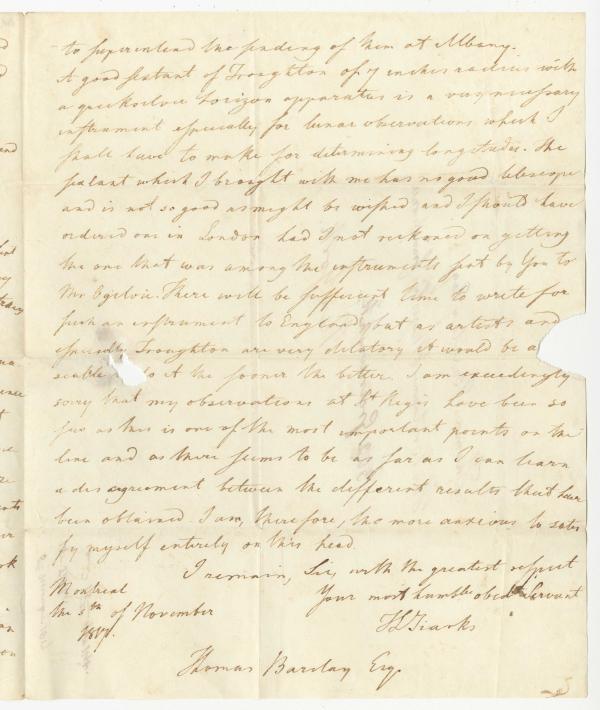 to superintend the sending of them at Albany.
A good sextant of Troughton of 7 inches radius with
a quicksilver horizon apparatus is a very necessary
instrument especially for lunar observations which I
shall have to make for determining longitudes. The
sextant which I brought with me has no good telescope
and is not so good as might be wished and I should have
ordered one in London had I not reckoned on getting
the one that was among the instruments sent by You to
Mr Ogilvie. There will be sufficient time to write for
such an instrument to England, but as artists and
especially Troughton are very dilatory it would be a
to it the sooner the better. I am exceedingly
sorry that my observations at St Regis have been so
few as this is one of the most important points on the
line and as there seems to be as far as I can learn
a disagreement between the different results that have
been obtained. I am, therefore, the more anxious to satis
fy myself entirely on this head.
I remain, Sir, with the greatest respect
Your most humble obedt Servant
Montreal
the 5th of November
1817.
JLTiarks
Thomas Barclay Esq.